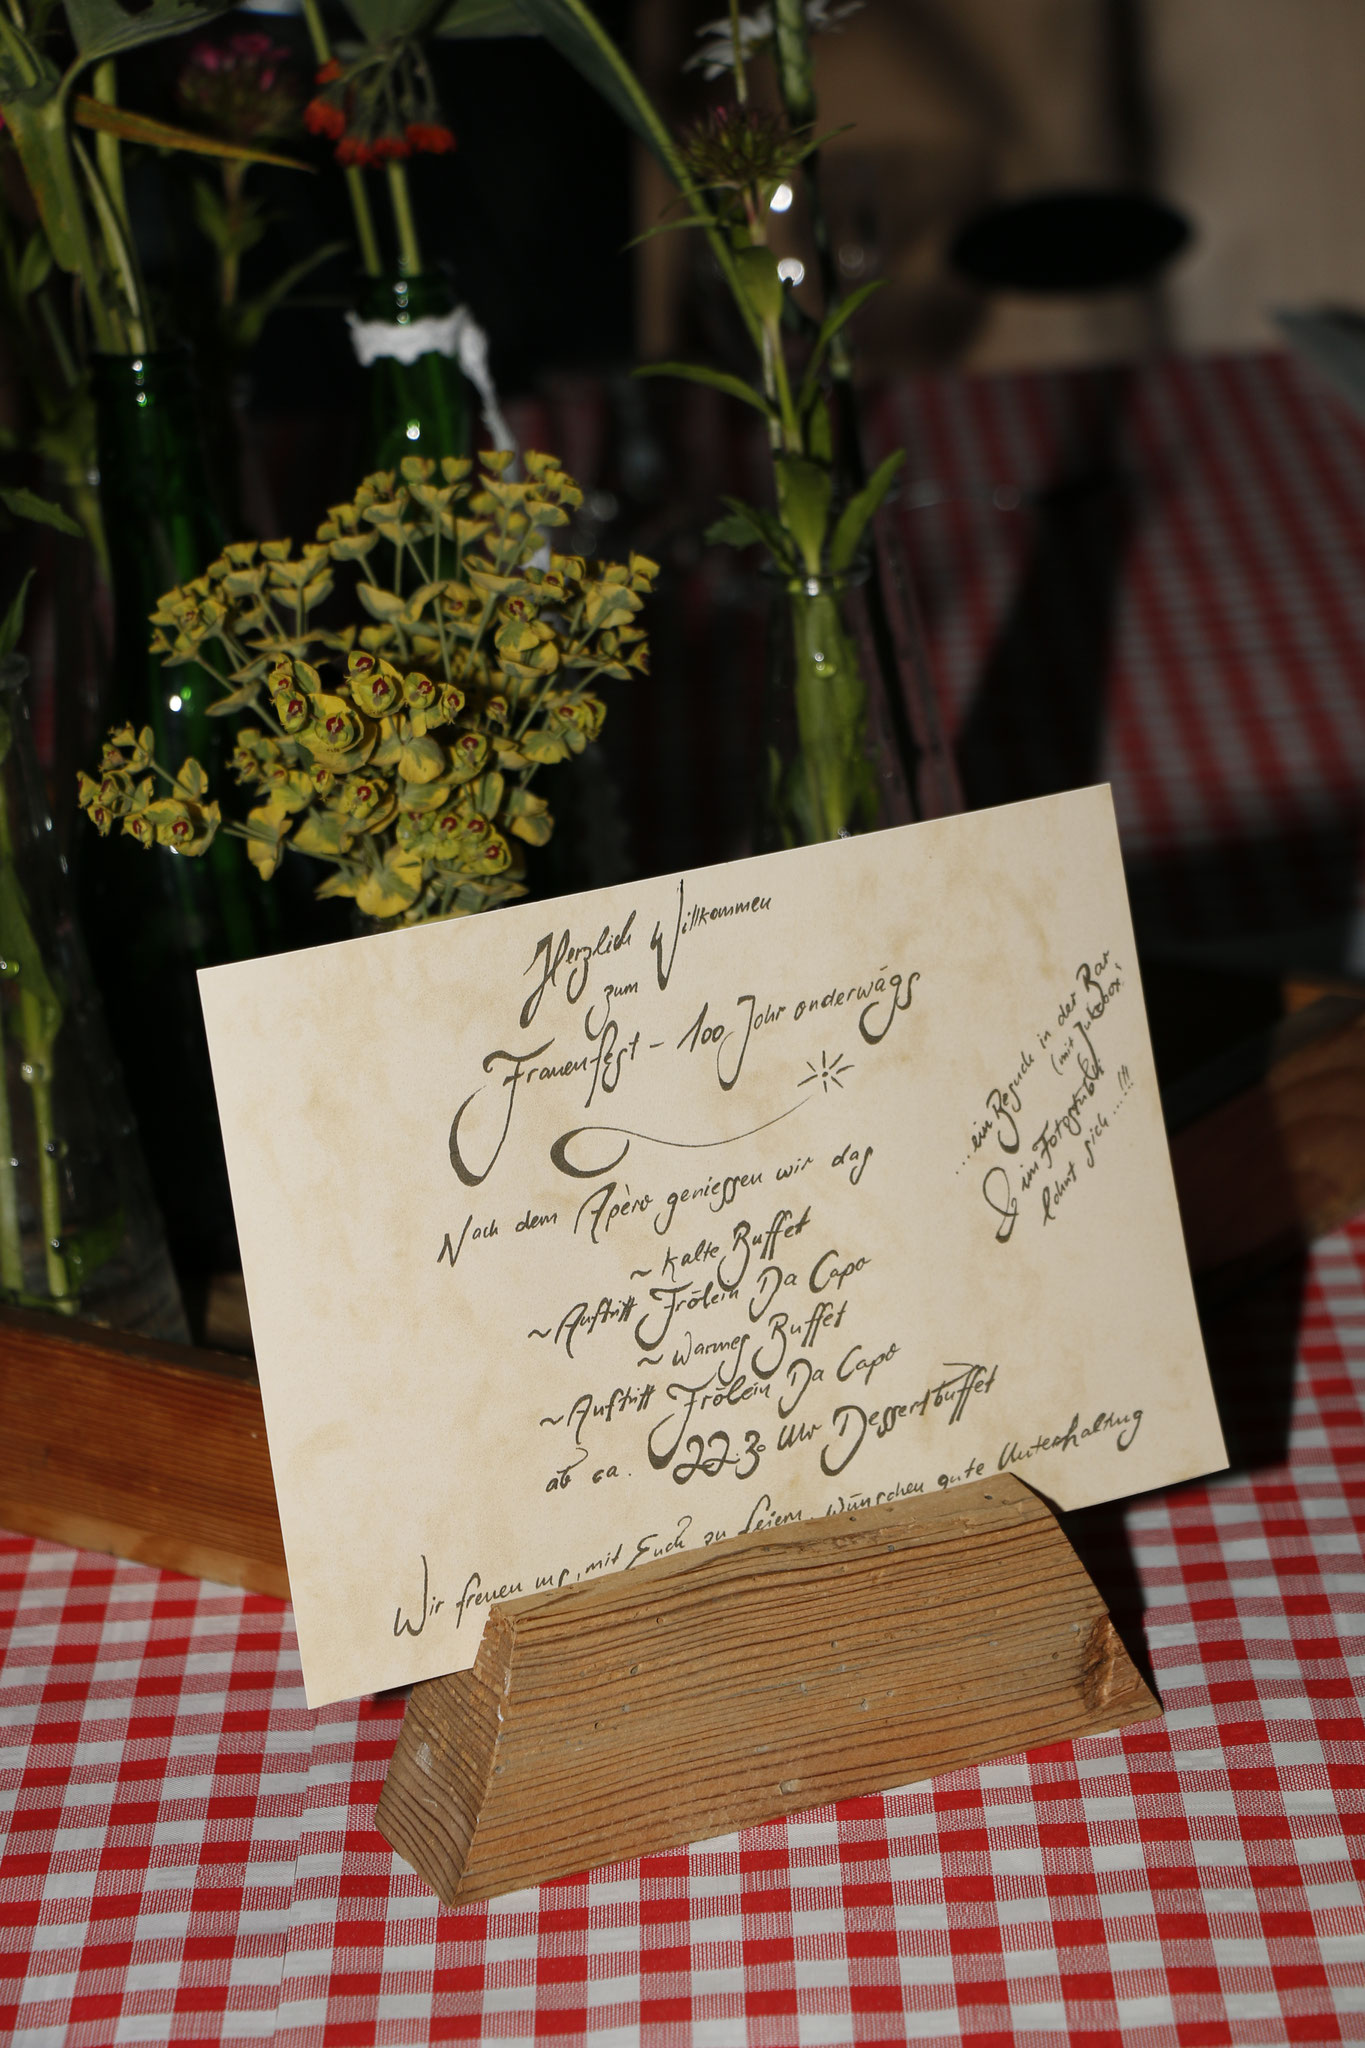 Herzlich Willkommen
zum
Frauenfest - 100 Johr onderwägs
Nach dem Apèro geniessen wir das
~ Kalte Buffet
~ Auftritt Frölein Da Capo
~ Warmes Buffet
~ Auftritt Frölein Da Capo
ab ca. 22.30 Uhr Dessertbuffet
Wir freuen uns, mit Euch zu feiern, wünschen gute Unterhaltung
....ein Besuch in der Bar
(mit Jukebox!
& im Fotostübli
lohnt sich.....!!!